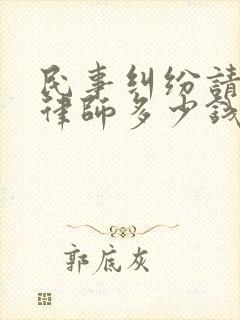 民事纠纷請
律師多少钱
郭底灰